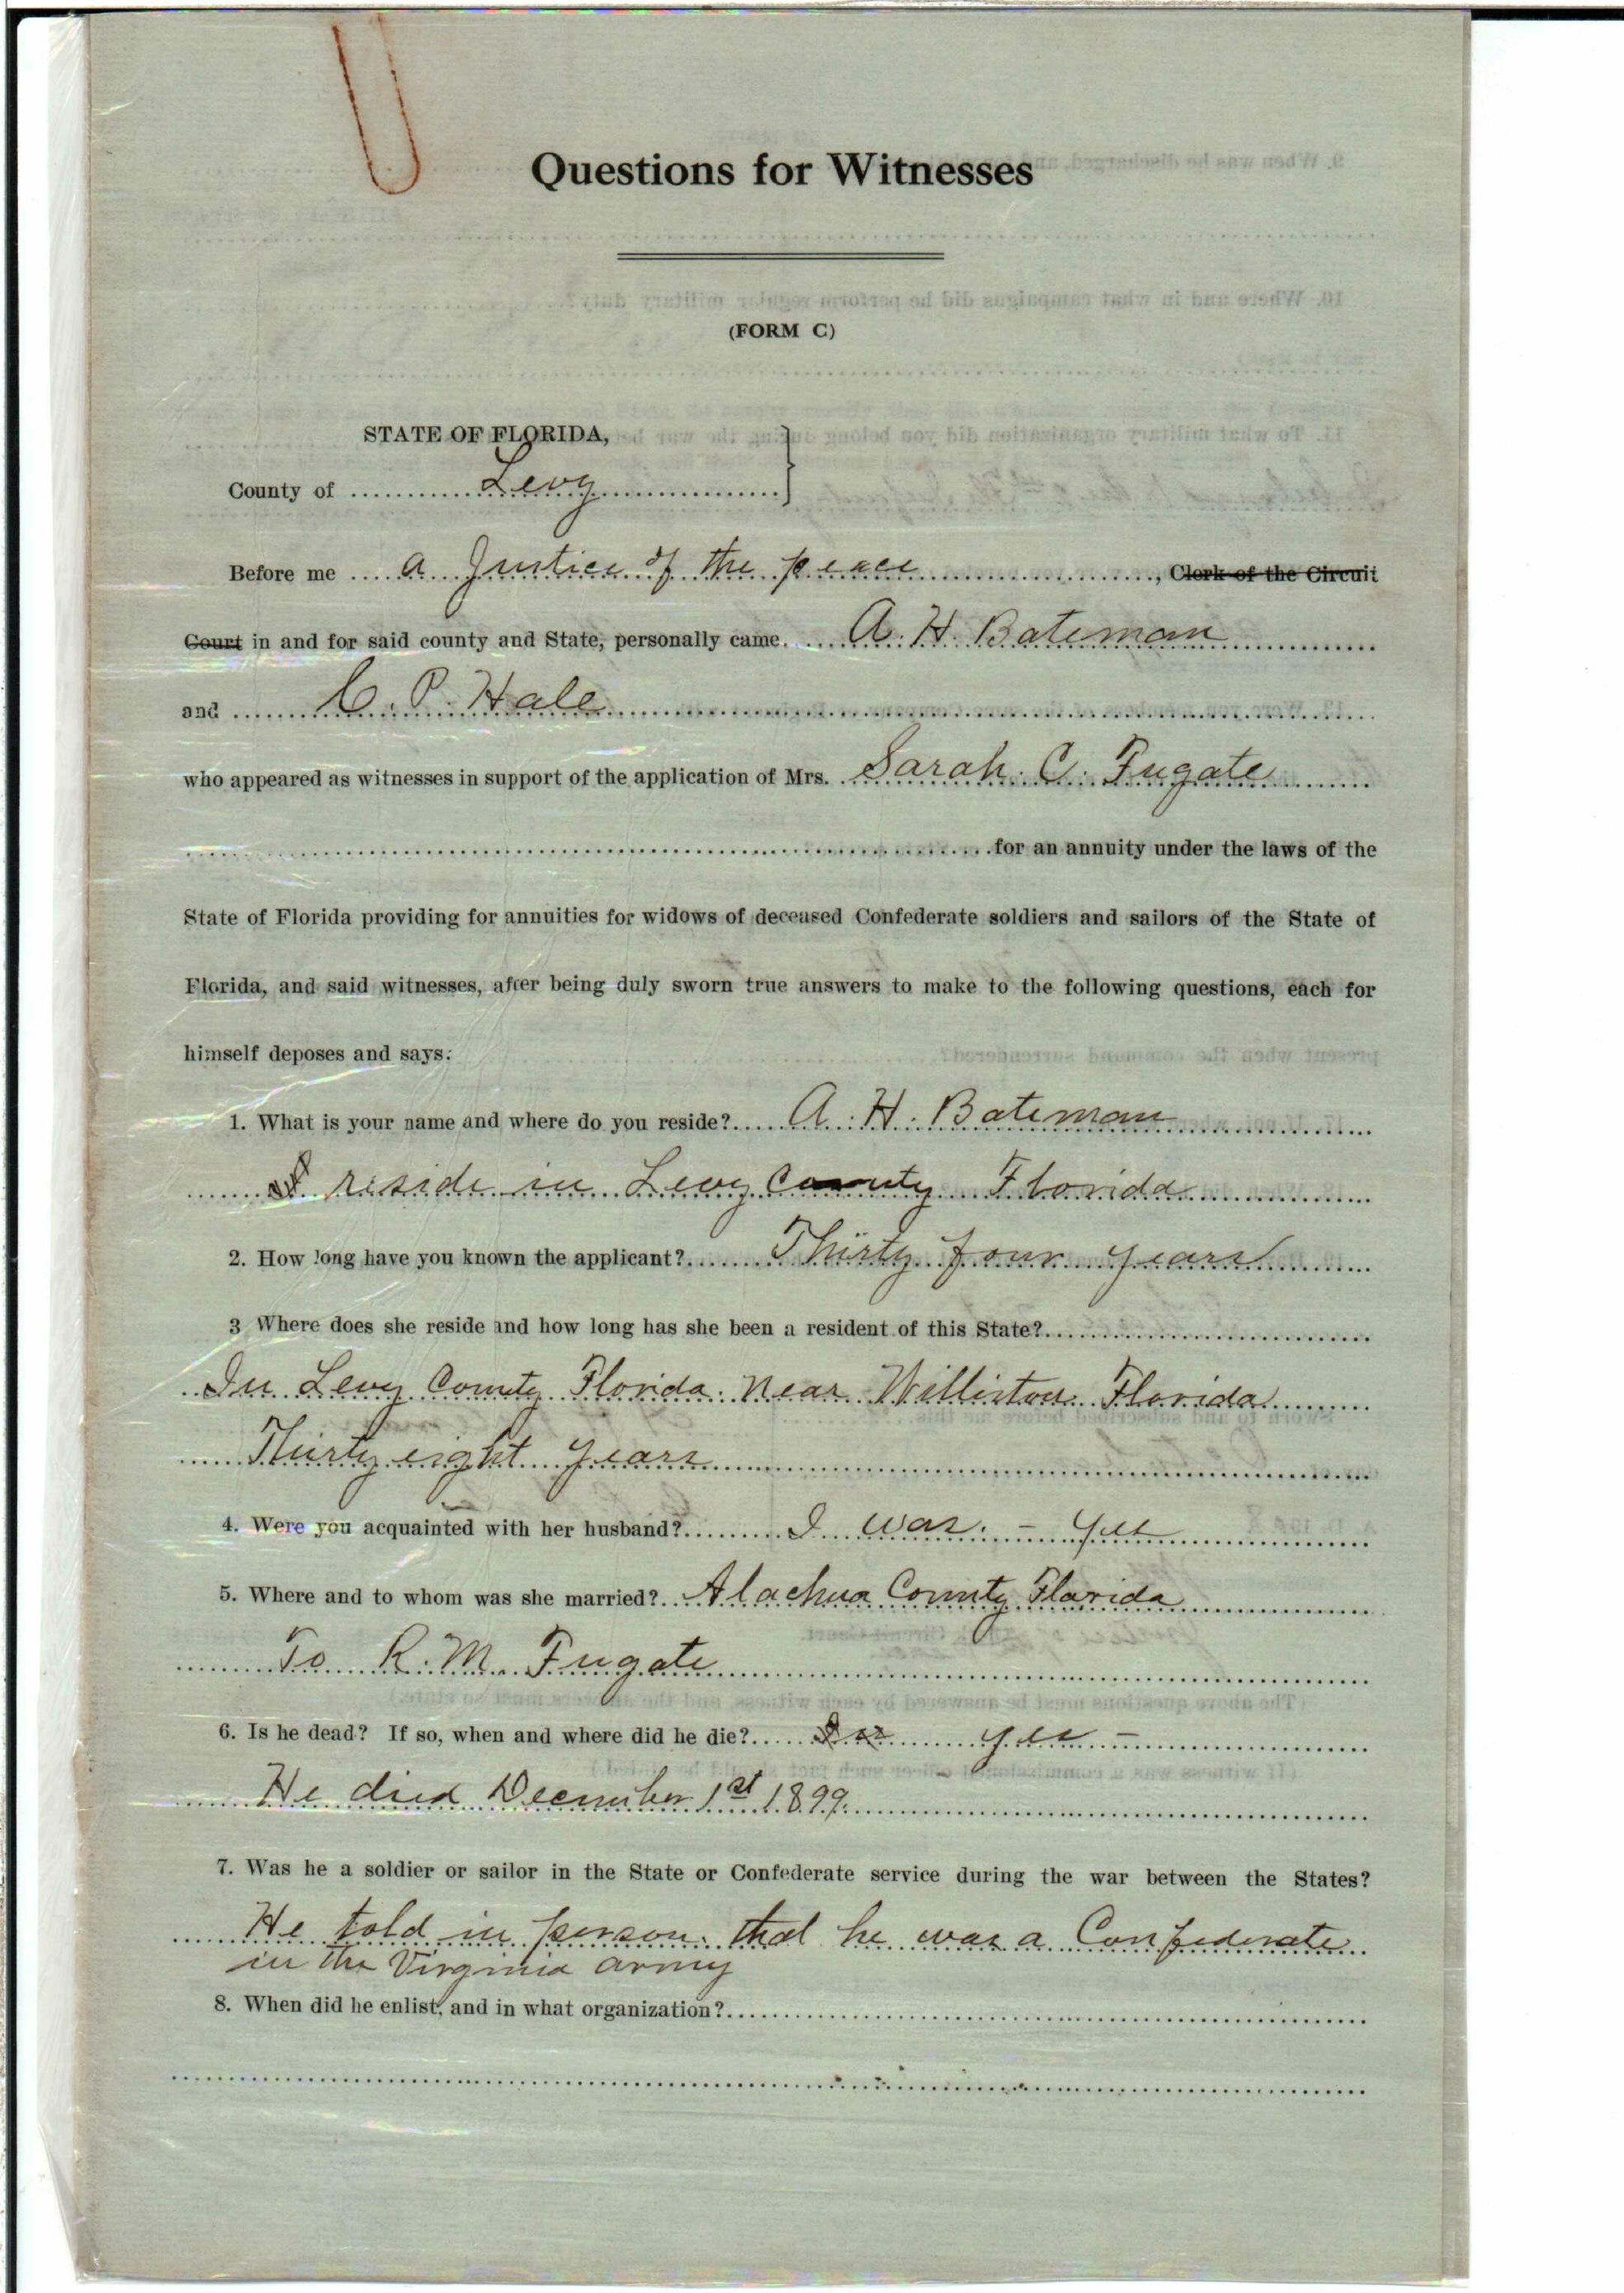 Questions for Witnesses
(FORM C)
STATE OF FLORIDA,
County of Levy
Before me a Justice of the peace, Clerk of the Circuit
Court in and for said county and State, personally came A. H. Bateman
and C. P. Hale
who appeared as witnesses in support of the application of Mrs. Sarah C. Fugate
for an annuity under the laws of the
State of Florida providing for annuities for widows of deceased Confederate soldiers and sailors of the State of
Florida, and said witnesses, after being duly sworn true answers to make to the following questions, each for
himself deposes and says:
1. What is your name and where do you reside? A. H. Bateman
I reside in Levy County Florida
2. How long have you known the applicant? Thirty four years
3 Where does she reside and how long has she been a resident of this State?
In Levy County Florida. Near Williston Florida
Thirty eight years
4. Were you acquainted with her husband? I was. - yes
5. Where and to whom was she married? Alachua County Florida
To R. M. Fugate
6. Is he dead? If so, when and where did he die? yes -
He died December 1st 1899.
7. Was he a soldier or sailor in the State or Confederate service during the war between the States?
He told in person. that he was a Confederate
in the Virginia army
8. When did he enlist, and in what organization?